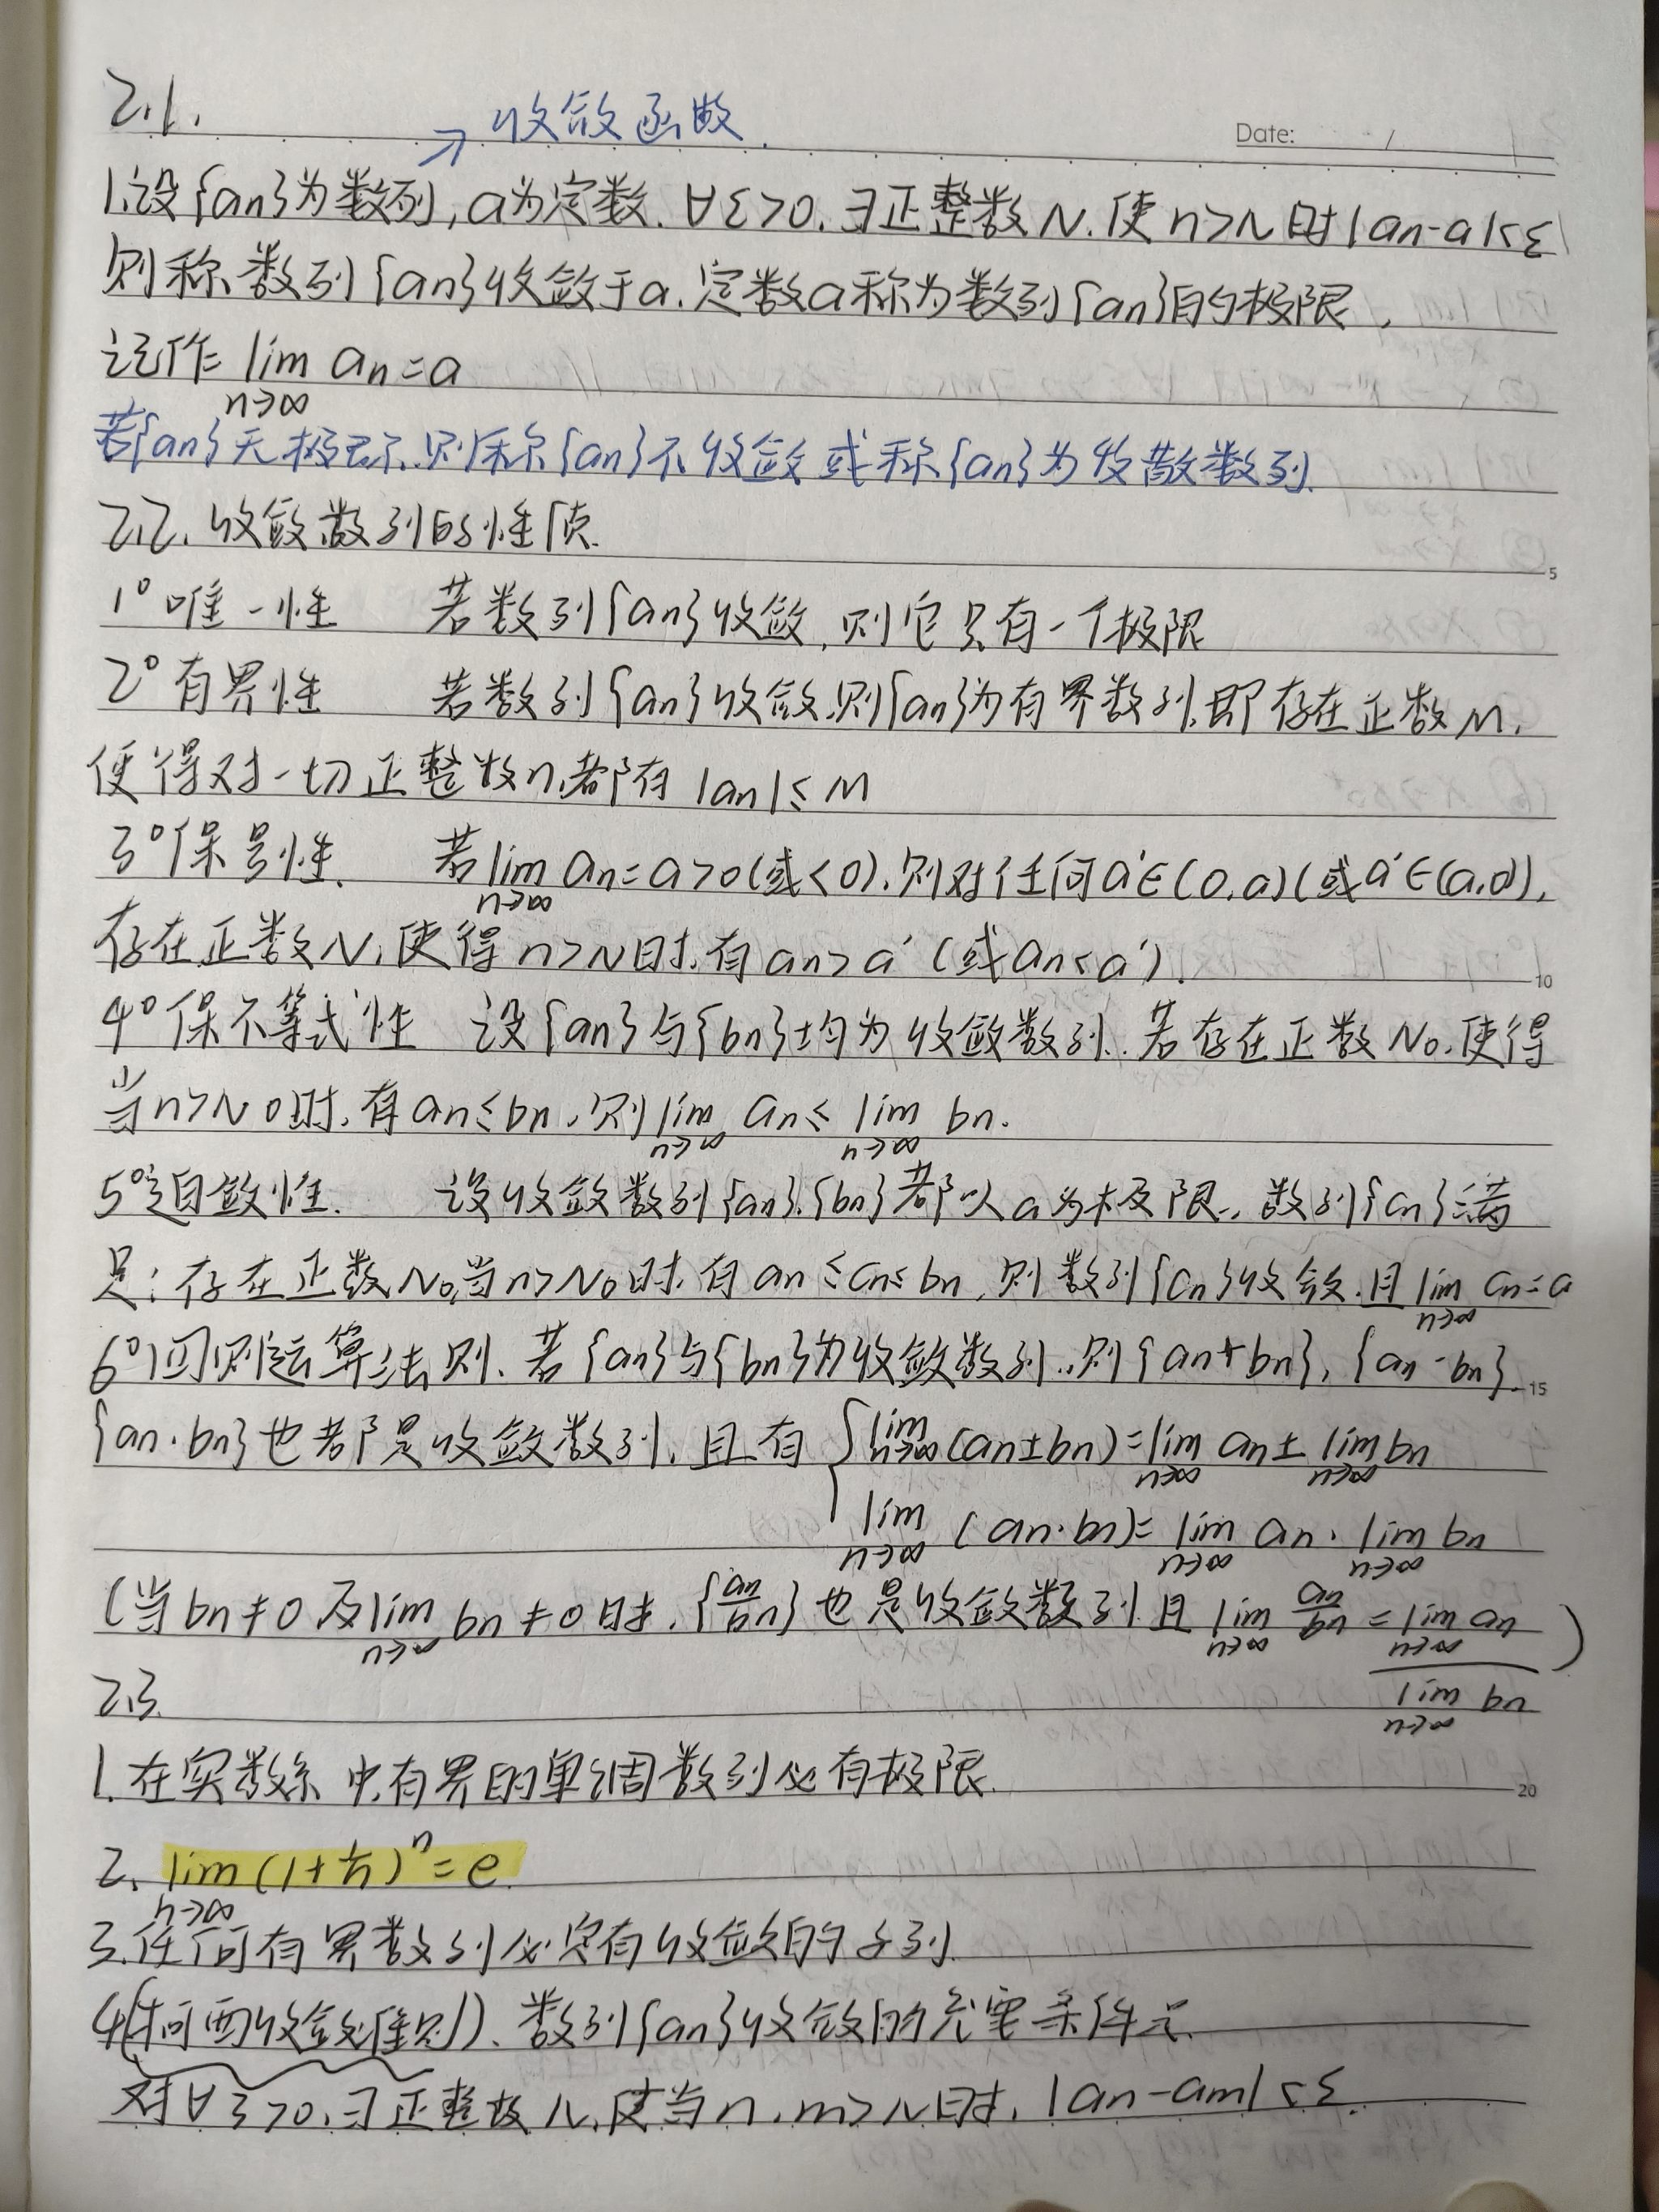 2.1.
→收敛函数.
Date: /
1.设{an}为数列,a为定数.∀ε>0.∃正整数N.使n>N时|an-a|<ε
则称数列{an}收敛于a.定数a称为数列{an}的极限,
记作 lim an=a
n→∞
若{an}无极限.则称{an}不收敛或称{an}为发散数列.
2.2.收敛数列的性质.
5
1°唯一性 若数列{an}收敛,则它只有一个极限
2°有界性 若数列{an}收敛.则{an}为有界数列.即存在正数M.
使得对一切正整数n.都有 |an|≤M
3°保号性. 若lim an=a>0(或<0).则对任何a'∈(0,a)(或a'∈(a,0)),
n→∞
存在正数N,使得n>N时.有an>a'(或an<a').
10
4°保不等式性 设{an}与{bn}均为收敛数列.若存在正数N0.使得
当n>N0时.有an≤bn.则lim an≤ lim bn.
n→∞ n→∞
5°迫敛性. 设收敛数列{an}.{bn}都以a为极限.数列{cn}满
足:存在正数N0,当n>N0时.有an≤cn≤bn,则数列{cn}收敛.且lim cn=a
n→∞
6°四则运算法则.若{an}与{bn}为收敛数列.则{an+bn},{an-bn}.
15
{an·bn}也都是收敛数列.且有 { lim(an±bn)=lim an±lim bn
n→∞ n→∞ n→∞
lim (an·bn)= lim an·lim bn
n→∞ n→∞ n→∞
(当bn≠0及lim bn≠0时.{an/bn}也是收敛数列.且lim an/bn = lim an )
n→∞ n→∞ n→∞
2.3.
lim bn
n→∞
1.在实数系中.有界的单调数列必有极限.
20
2. lim(1+1/n)^n=e.
n→∞
3.任何有界数列必定有收敛的子列.
4(柯西收敛准则).数列{an}收敛的充要条件是.
对∀ε>0.∃正整数N.使当n.m>N时.|an-am|<ε.